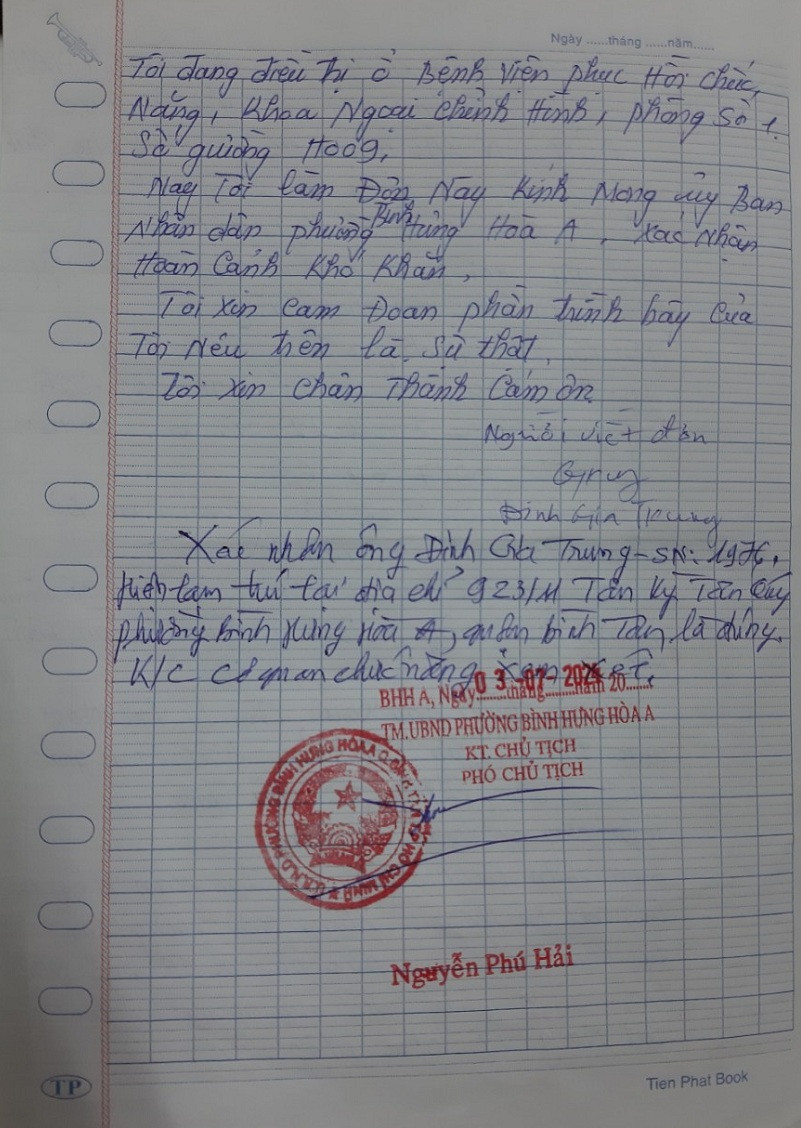 Ngày ......tháng ......năm......
Tôi đang điều trị ở Bệnh Viện phục Hồi chức
Năng, Khoa Ngoại chỉnh Hình, phòng số 1.
Số giường H009.
Nay Tôi làm Đơn Này Kính Mong ủy Ban
Nhân dân phường Bình Hưng Hoà A, xác Nhận
Hoàn Cảnh Khó Khăn,
Tôi xin cam Đoan phần trình bày của
Tôi Nêu trên là sự thật,
Tôi xin chân Thành Cảm ơn.
Người viết đơn
Đinh Gia Trung
Xác nhận ông Đinh Gia Trung - SN: 1976,
Hiện tạm trú tại địa chỉ 923/11 Tân Kỳ Tân Quý
phường Bình Hưng Hòa A, quận bình Tân là đúng.
K/C Cơ quan chức năng xem xét.
BHH A, Ngày 03 tháng -07- năm 20
TM.UBND PHƯỜNG BÌNH HƯNG HÒA A
KT. CHỦ TỊCH
PHÓ CHỦ TỊCH
U.B.N.D PHƯỜNG BÌNH HƯNG HÒA A Q.BÌNH TÂN T.P HỒ CHÍ MINH
Nguyễn Phú Hải
TP
Tien Phat Book